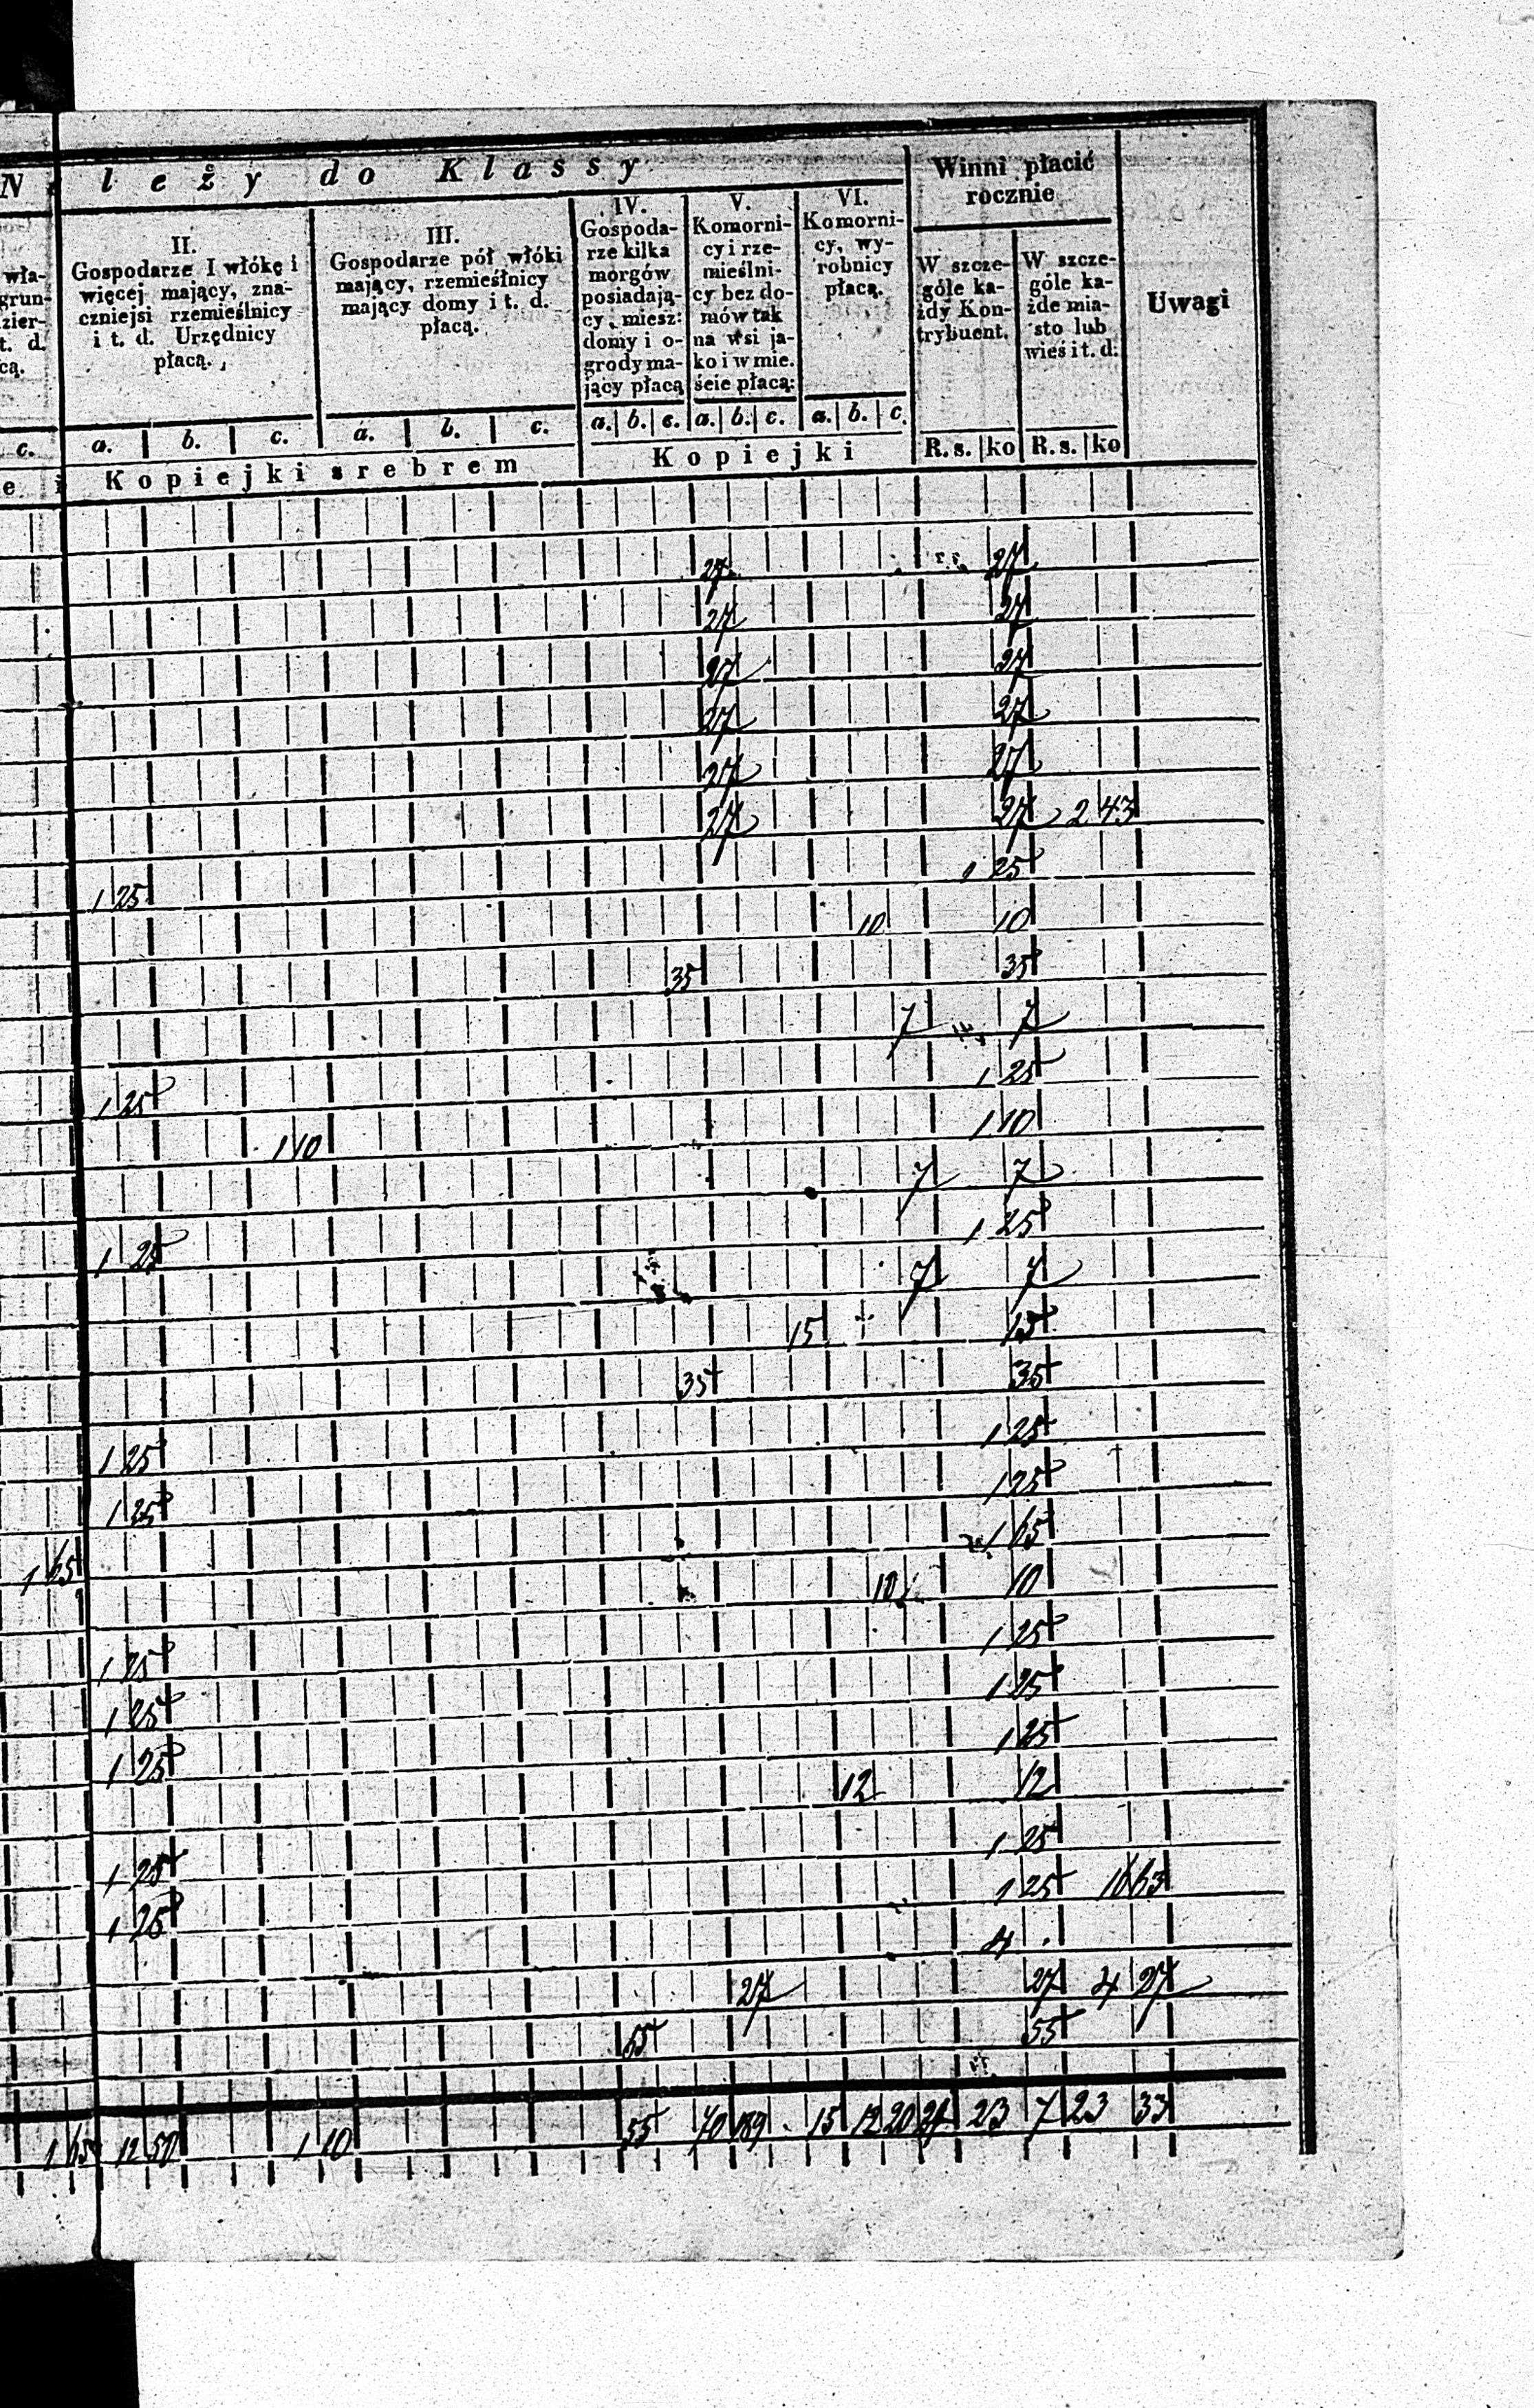 N leży do Klassy
Winni płacić
rocznie
Uwagi
wła-
grun-
zier-
t. d.
cą.
II.
Gospodarze I włókę i
więcej mający, zna-
czniejsi rzemieślnicy
i t. d. Urzędnicy
płacą.
III.
Gospodarze pół włóki
mający, rzemieślnicy
mający domy i t. d.
płacą.
IV.
Gospoda-
rze kilka
morgów
posiadają-
cy, miesz:
domy i o-
grody ma-
jący płacą
V.
Komorni-
cy i rze-
mieślni-
cy bez do-
mów tak
na wsi ja-
ko i w mie.
ście płacą:
VI.
Komorni-
cy, wy-
robnicy
płacą.
W szcze-
góle ka-
żdy Kon-
trybuent.
W szcze-
góle ka-
żde mia-
sto lub
wieś i t. d.
c. a. b. c. a. b. c. a. b. c. a. b. c. a. b. c. R. s. ko R. s. ko
e i Kopiejki srebrem Kopiejki
27 27
27 27
27 27
27 27
27 27
27 27 2 43
1 25 1 25
10 10
35 35
7 7
1 25 1 25
1 10 1 10
7 7
1 25 1 25
7 7
15 15
35 35
1 25 1 25
1 25 1 25
1 65 1 65
10 10
1 25 1 25
1 25 1 25
1 25 1 25
12 12
1 25 1 25
1 25 1 25 16 63
4
27 27 4 27
55 55
1 65 12 50 1 10 55 70 189 15 12 20 21 23 7 23 33